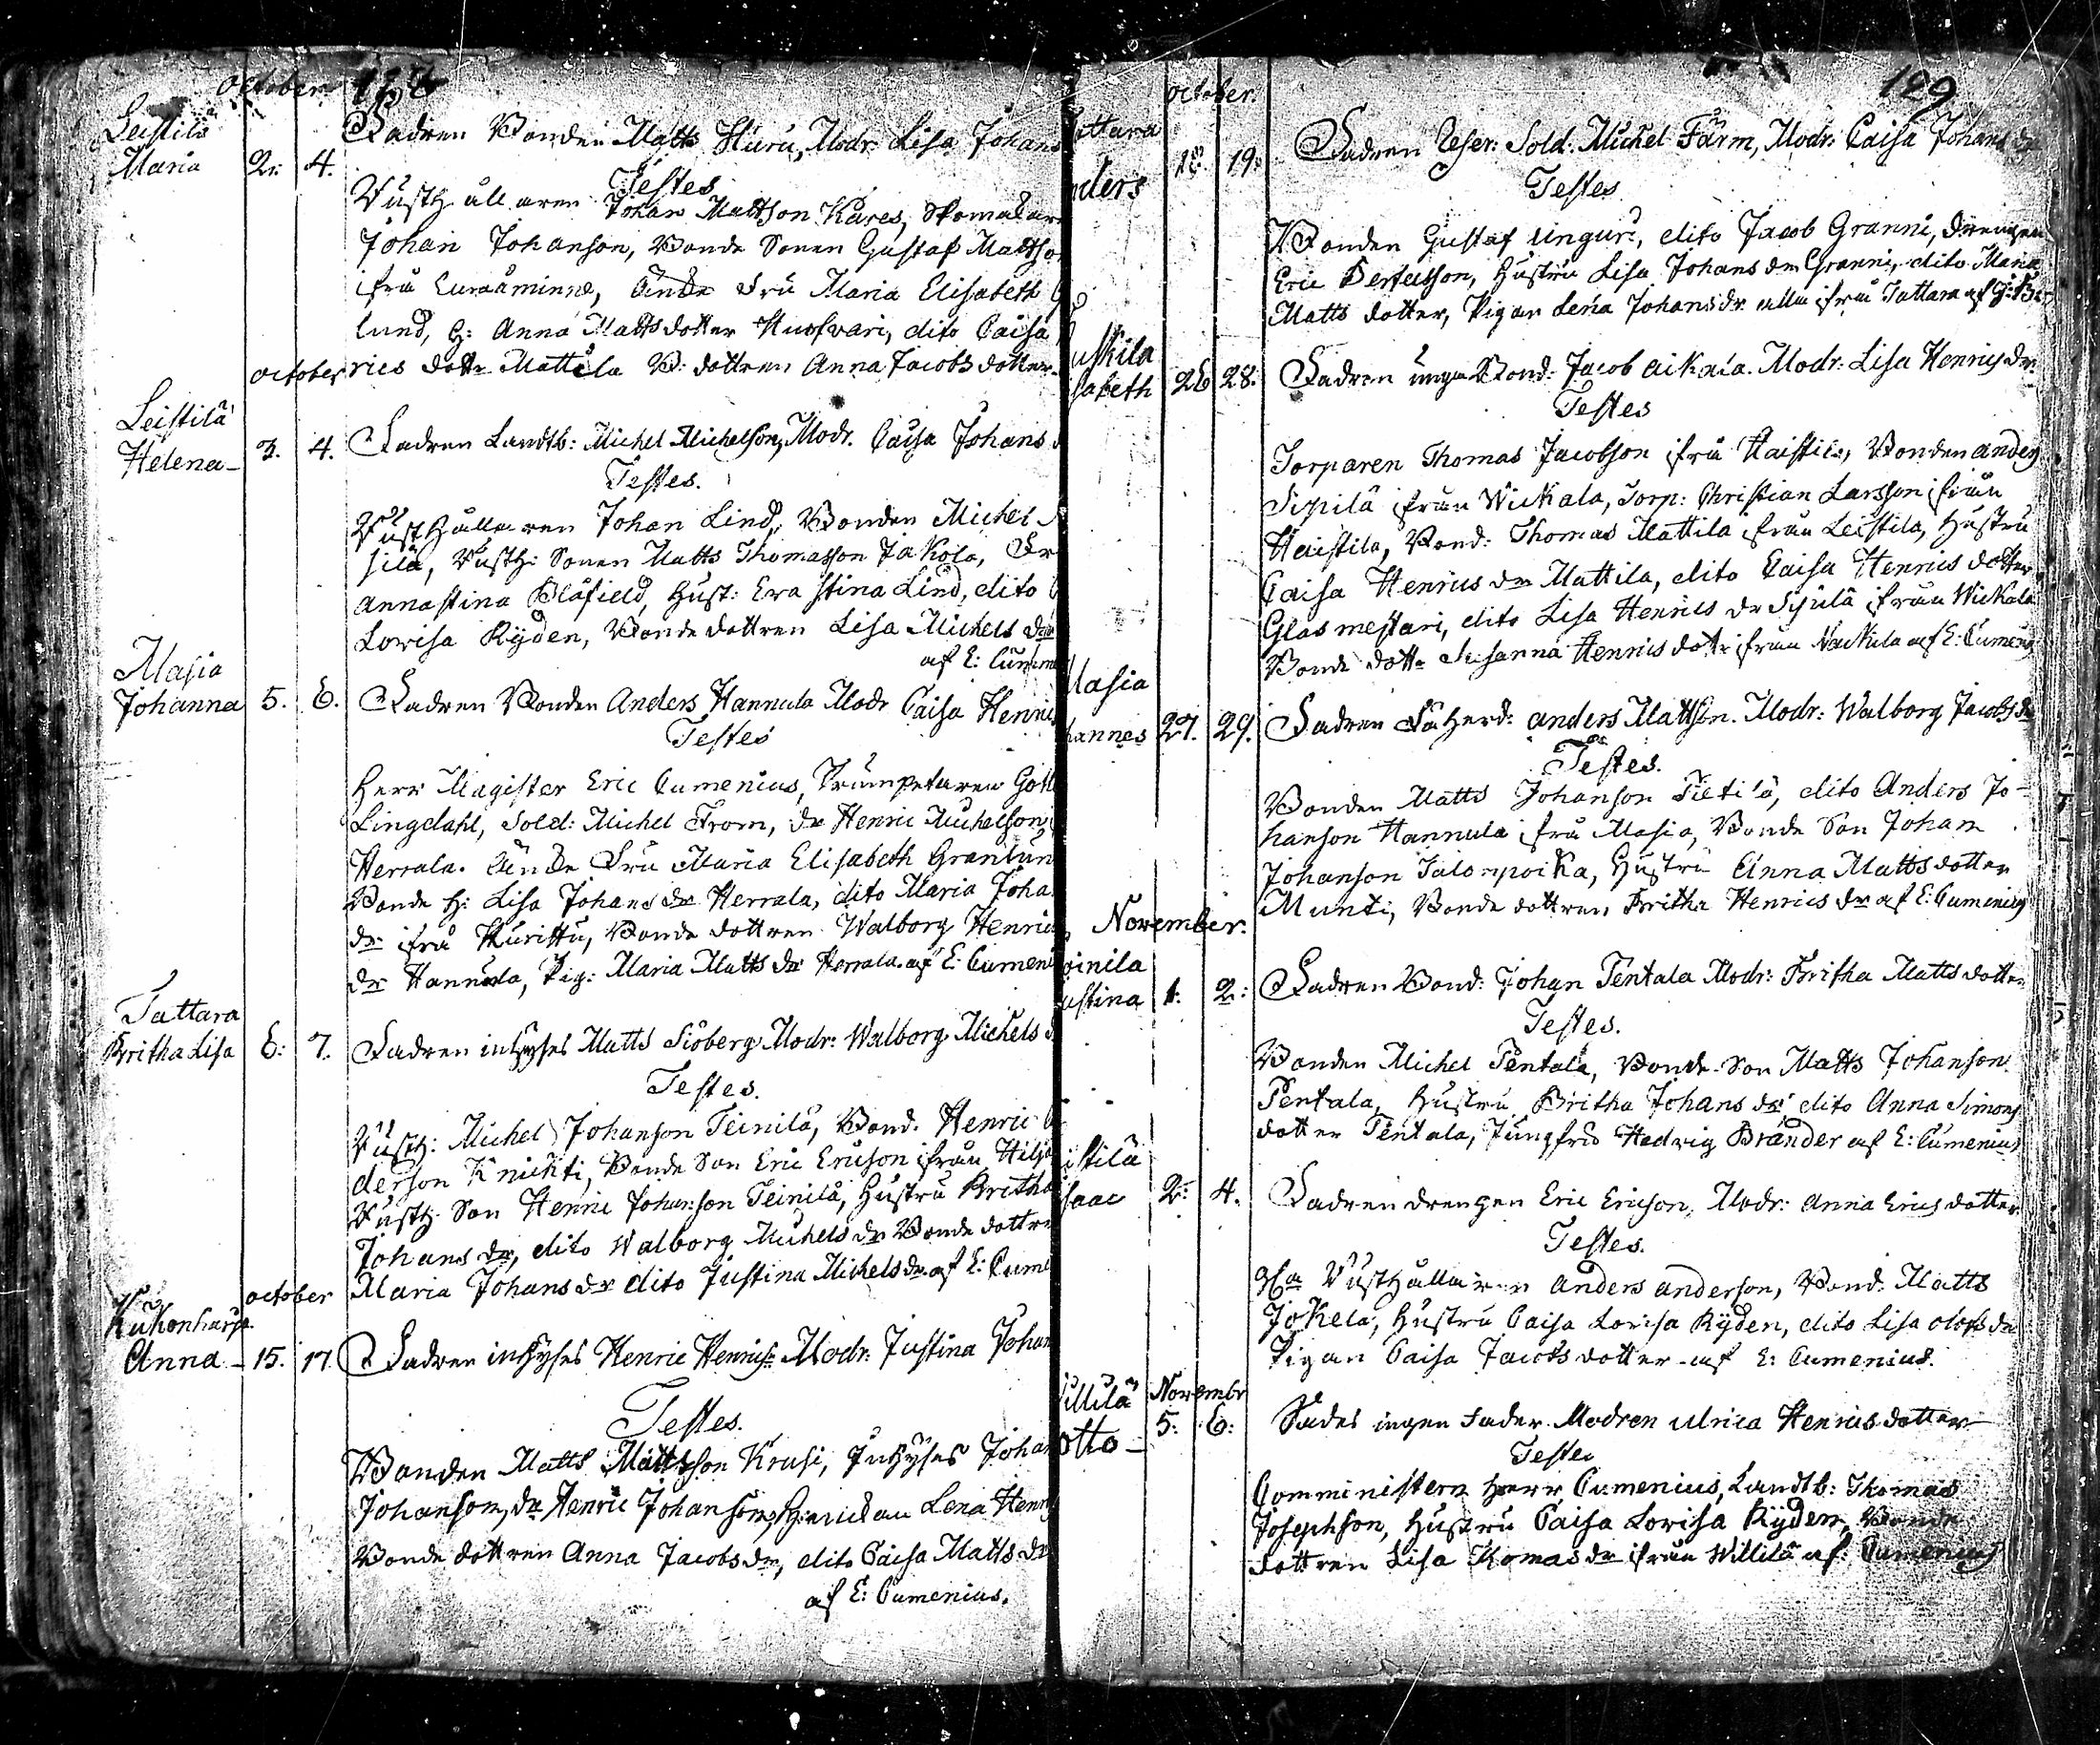 october
Leistilä
Maria 2. 4. Fadren Bonden Matts Huru, Modr: Lisa Johans
Testes
Rusthållaren Johan Mattson Kares, Skomakar
Johan Johanson, Bonde Sonen Gustaf Mattso
ifrå Euraåminne, Fru Maria Elisabeth
lund, H: Anna Mattsdotter dito Caisa
october
rics dottr Mattila B: dottren Anna Jacobs dotter.
Leistilä
Helena 3. 4. Fadren Landtb: Michel Michelson, Modr. Caisa Johans
Testes.
Rusthållaren Johan Lind, Bonden Michel
silä, Rusth: Sonen Matts Thomasson Jakola, Fr
Annastina Blåfield, Hust: Eva Stina Lind, dito
Lovisa Ryden, Bonde dottren Lisa Michels dr
af E: Cumeni
Masia
Johanna 5. 6. Fadren Bonden Anders Hannula Modr Caisa Henrics
Testes
Herr Magister Eric Cumenius, Trumpetaren Gott
Lingdahl, Sold: Michel From, dr Henric Michelson
Herrala. Fru Maria Elisabeth Granlun
Bonde H: Lisa Johans dr Herrala, dito Maria Joha
dr ifrå Kurittu, Bonde dottren Walborg Henrics
dr Hannula, Pig: Maria Matts dr Herrala. af E: Cumeni
Tattara
Britha Lisa 6: 7. Fadren inhyses Matts Siöberg Modr: Walborg Michels d
Testes.
Rusth: Michel Johanson Teinilä, Bond. Henric
derson Knichti, Bonde Son Eric Ericson ifrån
Rusth. Son Henric Johanson Teinilä, Hustru Britha
Johans dr, dito Walborg Michels dr Bonde dottre
Maria Johans dr dito Justina Michels dr af E: Cume
october
Kukonharja
Anna 15. 17. Fadren inhyses Henric Henrics: Modr: Justina Johan
Testes.
Bonden Matts Mattsson Krusi, Inhyses Johan
Johanson, dr Henric Johanson, Lena Henri
Bonde dottren Anna Jacobs dr, dito Caisa Matts dr
af E: Cumenius.
129
october.
Tattara
nders 18. 19. Fadren Reser: Sold: Michel Färm, Modr: Caisa Johans dr
Testes
Bonden Gustaf Unguri, dito Jacob Granni, drengen
Eric Bertelsson, Hustru Lisa Johans dr Granni, dito Maria
Matts dotter, Pigan Lena Johans dr alla ifrå Tattara af
uskila
sabeth 26 28. Fadren unga Bond: Jacob Aikala. Modr: Lisa Henrics dr
Testes
Torparen Thomas Jacobson ifrå Haistila, Bonden Anders
Sipilä ifrån Wickala, Torp: Christian Larsson ifrån
Haistila, Bond: Thomas Mattila ifrån Leistila, Hustru
Caisa Henrics dr Mattila, dito Caisa Henrics dotter
Glasmestari, dito Lisa Henrics dr Sipilä ifrån Wickala
Bonde dottr Susanna Henrics dotr ifrån Nackila af E: Cumenius
Masia
hannes 27. 29. Fadren Fäherd: Anders Mattson. Modr: Walborg Jacobs dr
Testes.
Bonden Matts Johanson Tietilä, dito Anders Jo-
hanson Hannula ifrå Masia, Bonde Son Johan
Johanson Talonpoika, Hustru Anna Matts dotter
Munti, Bonde dottren Britha Henrics dr af E: Cumenius
November.
oinila
ustina 1. 2: Fadren Bond: Johan Pentala Modr: Britha Matts dotter
Testes.
Bonden Michel Pentala, Bonde Son Matts Johanson
Pentala, Hustru Britha Johans dr dito Anna Simons
dotter Pentala, Jungfru Hedvig Brander af E: Cumenius
istilä
Isaac 2. 4. Fadren drengen Eric Ericson, Modr: Anna Erics dotter
Testes.
Rusthållaren Anders Anderson, Bond: Matts
Jokela, Hustru Caisa Lovisa Ryden, dito Lisa Olofs dr
Pigan Caisa Jacobs dotter af E: Cumenius.
Willilä Novembr
Otto 5. 6: ingen Fader Modren Ulrica Henrics dotter
Testes
Comministern Herr Cumenius, Landtb: Thomas
Josephson, Hustru Caisa Lovisa Ryden, Bonde
dottren Lisa Thomas dr ifrån Willilä af: Cumenius